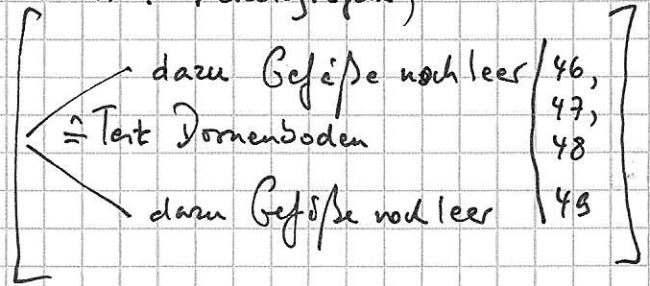 dazu Gefäße noch leer 46,
47,
≙ Text Dornenboden
48
dazu Gefäße noch leer 49